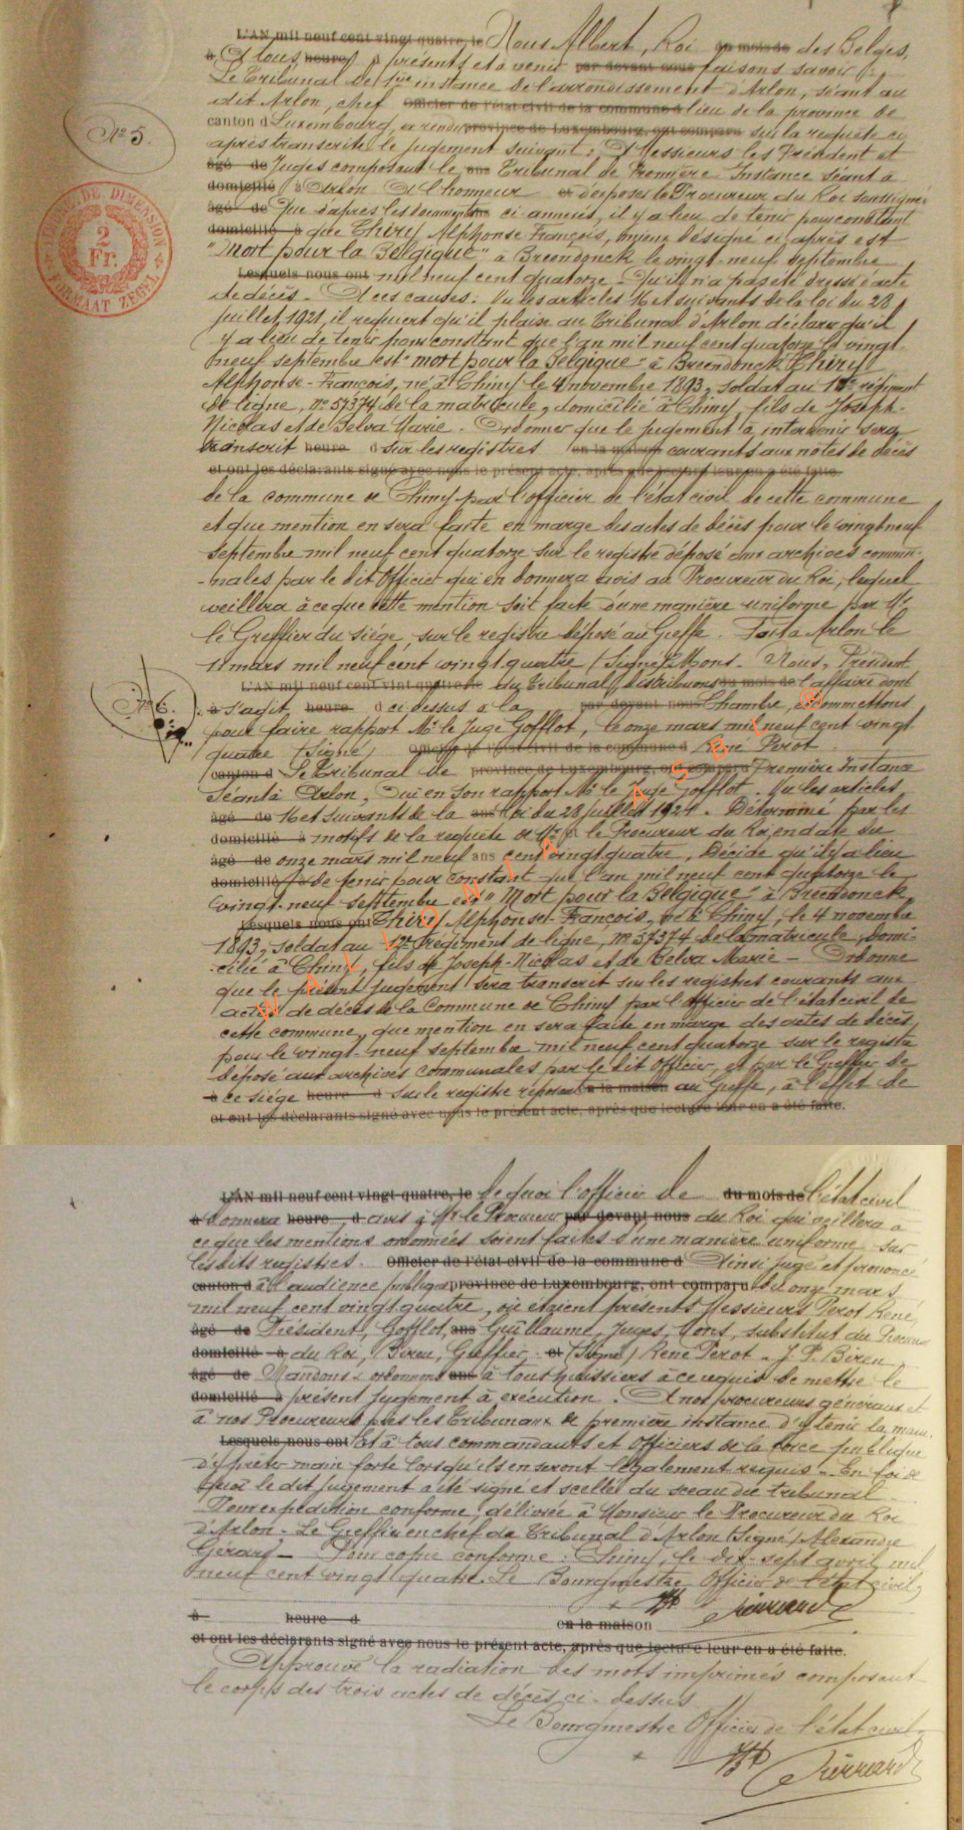 L'AN mil neuf cent vingt quatre, le Nous Albert, Roi du mois de des Belges,
à, A tous heure, présents et à venir par devant nous faisons savoir :
Le Tribunal de 1ère instance de l'arrondissement d'Arlon, séant au
dit Arlon, chef Officier de l'état civil de la commune d lieu de la province de
canton d Luxembourg, a rendu province de Luxembourg, ont comparu sur la requête ci
N° 5.
après transcrite le jugement suivant : A Messieurs les Président et
âgé de Juges composant le ans Tribunal de Première Instance séant à
domicilié à Arlon A l'honneur et d'exposer le Procureur du Roi soussigné
âgé de Que d'après les documents ans ci-annexés, il y a lieu de tenir pour constant
domicilié à que Thiry Alphonse François, mieux désigné ci après est
"Mort pour la Belgique" à Breendonck le vingt-neuf septembre
Lesquels nous ont mil neuf cent quatorze - Qu'il n'a pas été dressé acte
de décès - A ces causes : Vu les articles 16 et suivants de la loi du 28
juillet 1921, il requiert qu'il plaise au Tribunal d'Arlon déclarer qu'il
y a lieu de tenir pour constant que l'an mil neuf cent quatorze le vingt-
neuf septembre est "mort pour la Belgique" à Breendonck Thiry
Alphonse-François, né à Chiny le 4 novembre 1893, soldat au 12e régiment
de ligne, n° 57374 de la matricule, domicilié à Chiny, fils de Joseph-
Nicolas et de Selva Marie. Ordonner que le jugement à intervenir sera
transcrit heure d sur les registres en la maison courants aux notes de décès
et ont les déclarants signé avec nous le présent acte, après que lecture leur en a été faite.
de la commune de Chiny par l'officier de l'état civil de cette commune
et que mention en sera faite en marge des actes de décès pour le vingt neuf
septembre mil neuf cent quatorze sur le registre déposé aux archives commu-
-nales par le dit Officier qui en donnera avis au Procureur du Roi, lequel
veillera à ce que cette mention soit faite d'une manière uniforme par Mr
le Greffier du siège sur le registre déposé au Greffe. Fait à Arlon le
11 mars mil neuf cent vingt quatre (Signé) Mons. Nous, Président
L'AN mil neuf cent vingt quatre le du Tribunal, distribuons du mois de l'affaire dont
N° 6.
à s'agit heure d ci dessus à la par devant nous Chambre, commettons
pour faire rapport Mr le Juge Gofflot, le onze mars mil neuf cent vingt
quatre (Signé) Officier de l'état civil de la commune d René Perot
canton d Le Tribunal de province de Luxembourg, ont comparu Première Instance
séant à Arlon, Oui en son rapport Mr le Juge Gofflot. Vu les articles
âgé de 16 et suivants de la ans loi du 28 juillet 1921. Déterminé par les
domicilié à motifs de la requête de Mr le Procureur du Roi, en date du
âgé de onze mars mil neuf ans cent vingt quatre, Décide qu'il y a lieu
domicilié à de tenir pour constant que l'an mil neuf cent quatorze le
vingt-neuf septembre est "Mort pour la Belgique" à Breendonck
Lesquels nous ont Thiry Alphonse-François, né à Chiny, le 4 novembre
1893, soldat au 12e régiment de ligne, n° 57374 de la matricule, domi-
cilié à Chiny, fils de Joseph-Nicolas et de Telva Marie - Ordonne
que le présent jugement sera transcrit sur les registres courants aux
actes de décès de la Commune de Chiny par l'officier de l'état civil de
cette commune, que mention en sera faite en marge des actes de décès
pour le vingt-neuf septembre mil neuf cent quatorze sur le registre
déposé aux archives communales par le dit Officier, et par le Greffier de
à ce siège heure d sur le registre en la maison au Greffe, à l'effet de
et ont les déclarants signé avec nous le présent acte, après que lecture leur en a été faite.
TIMBRE DE DIMENSION
2 Fr.
FORMAAT ZEGEL
WALLONIA ASBL ®
L'AN mil neuf cent vingt quatre, le de quoi l'officier de du mois de l'état civil
à donnera heure, d avis à Mr le Procureur par devant nous du Roi qui veillera à
ce que les mentions ordonnées soient faites d'une manière uniforme sur
lesdits registres. Officier de l'état civil de la commune d Ainsi jugé et prononcé
canton d à l'audience publique province de Luxembourg, ont comparu du onze mars
mil neuf cent vingt quatre, où étaient présents Messieurs Perot René,
âgé de Président, Gofflot, ans Guillaume, Juges, Mons, substitut du Procureur
domicilié à du Roi, Biren, Greffier. et (Signé) René Perot - J. P. Biren
âgé de Mandons & ordonnons ans à tous huissiers à ce requis de mettre le
domicilié à présent jugement à exécution. A nos procureurs généraux et
à nos Procureurs près les Tribunaux de première instance d'y tenir la main.
Lesquels nous ont Et à tous commandants et Officiers de la force publique
d'y prêter main forte lorsqu'ils en seront légalement requis. En foi de
quoi le dit jugement a été signé et scellé du sceau du tribunal
Pour expédition conforme, délivrée à Monsieur le Procureur du Roi
d'Arlon - Le Greffier en chef du Tribunal d'Arlon (Signé) Alexandre
Gérard - Pour copie conforme : Chiny, le dix-sept avril mil
neuf cent vingt quatre. Le Bourgmestre Officier de l'état civil,
à heure d en la maison
et ont les déclarants signé avec nous le présent acte, après que lecture leur en a été faite.
Approuvé la radiation des mots imprimés composant
le corps des trois actes de décès ci-dessus
Le Bourgmestre Officier de l'état civil,